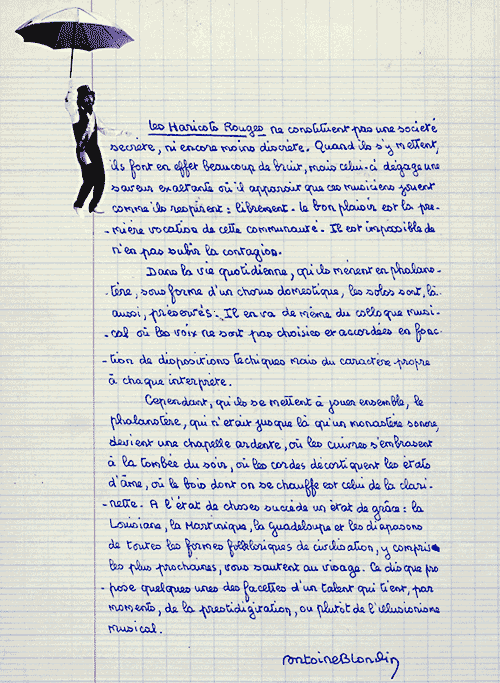 Les Haricots Rouges ne constituent pas une société
secrète, ni encore moins discrète. Quand ils s'y mettent,
ils font en effet beaucoup de bruit, mais celui-ci dégage une
saveur exaltante où il apparait que ces musiciens jouent
comme ils respirent : librement. Le bon plaisir est la pre-
-mière vocation de cette communauté. Il est impossible de
n'en pas subir la contagion.
Dans la vie quotidienne, qu'ils mènent en phalans-
-tère, sous forme d'un chorus domestique, les solos sont, là
aussi, préservés. Il en va de même du colloque musi-
-cal où les voix ne sont pas choisies et accordées en fonc-
-tion de dispositions techiques mais du caractère propre
à chaque interprète.
Cependant, qu'ils se mettent à jouer ensemble, le
phalanstère, qui n'était jusque là qu'un monastère sonore,
devient une chapelle ardente, où les cuivres s'embrasent
à la tombée du soir, où les cordes décortiquent les états
d'âme, où le bois dont on se chauffe est celui de la clari-
-nette. A l'état de choses succède un état de grâce : la
Louisiane, la Martinique, la Guadeloupe et les diapasons
de toutes les formes folkloriques de civilisation, y compris
les plus prochaines, vous sautent au visage. Ce disque pro
pose quelques unes des facettes d'un talent qui tient, par
moments, de la prestidigitation, ou plutôt de l'illusionisme
musical.
Antoine Blondin